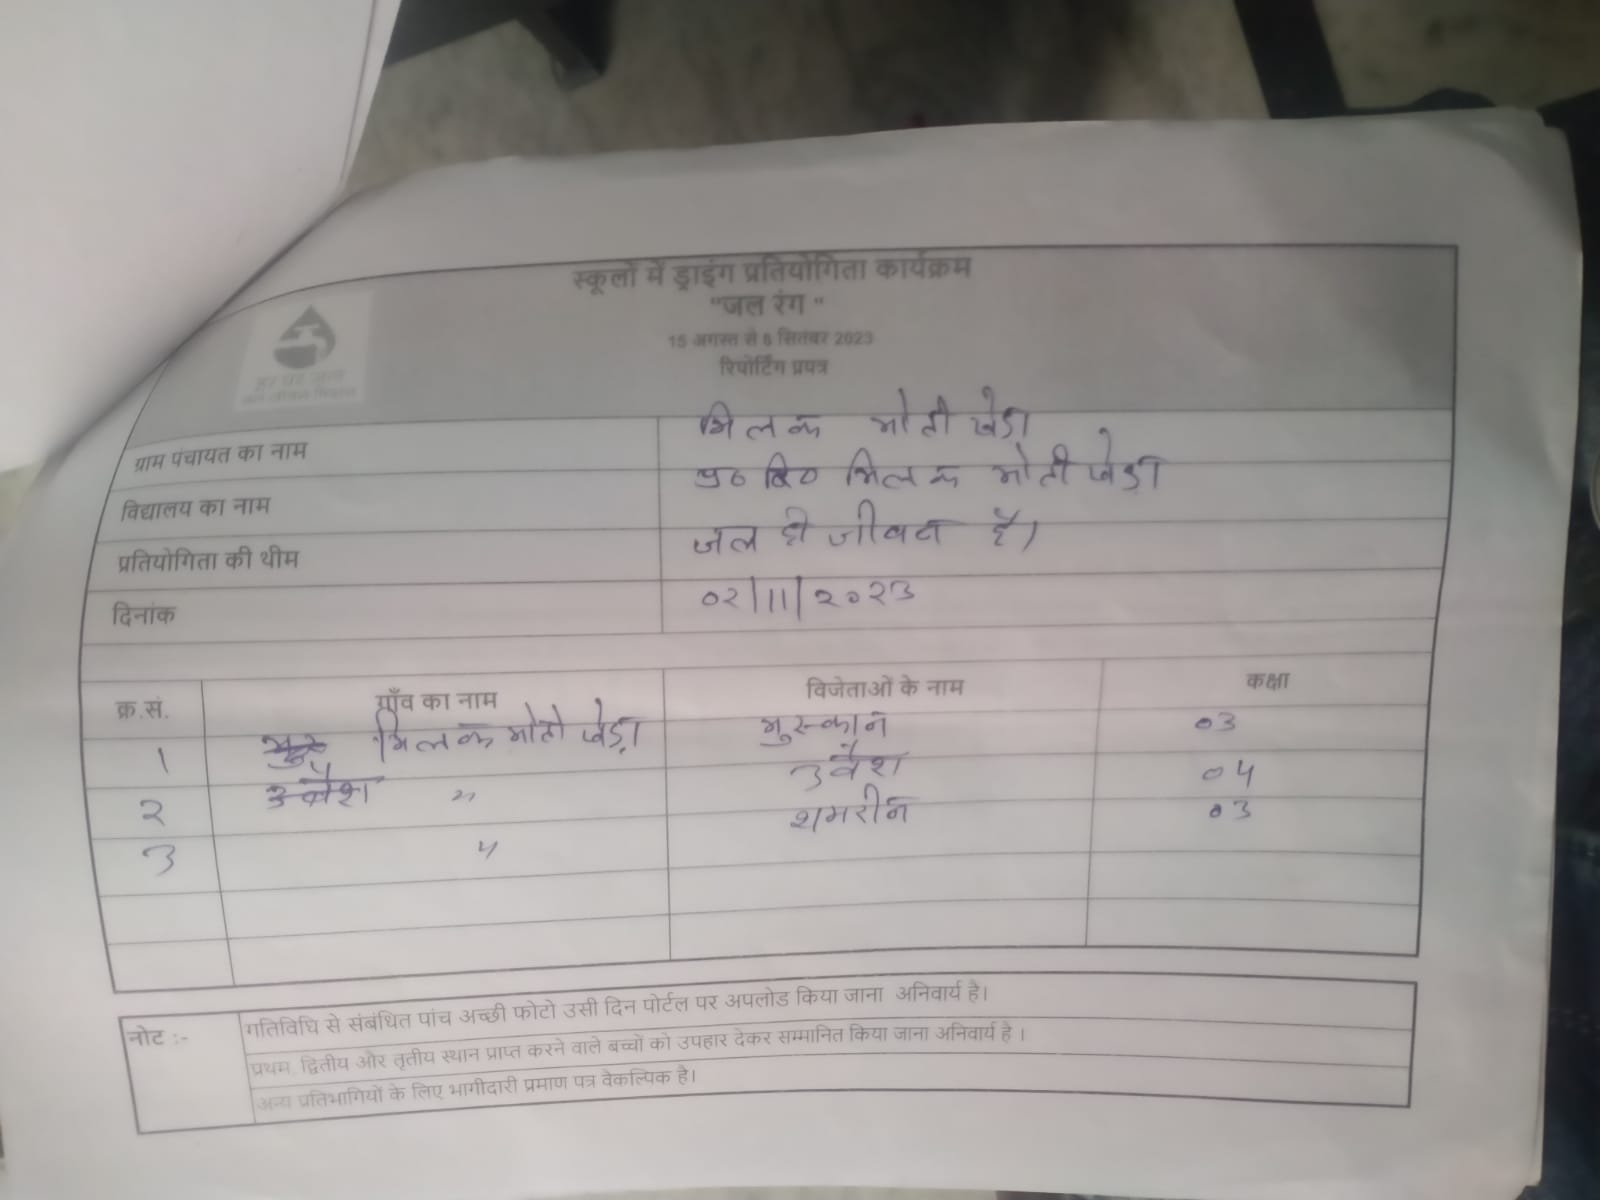 स्कूलों में ड्राइंग प्रतियोगिता कार्यक्रम
"जल रंग "
15 अगस्त से 8 सितंबर 2023
रिपोर्टिंग प्रपत्र
हर घर जल
जल जीवन मिशन
ग्राम पंचायत का नाम मिलक मोती खेड़ा
विद्यालय का नाम प्र० वि० मिलक मोती खेड़ा
प्रतियोगिता की थीम जल ही जीवन है।
दिनांक ०२/11/२०२३
क्र.सं. गाँव का नाम विजेताओं के नाम कक्षा
1 मिलक मोती खेड़ा मुस्कान ०३
२ उवैश " उवैश ०4
३ " शमरीन ०३
नोट :- गतिविधि से संबंधित पांच अच्छी फोटो उसी दिन पोर्टल पर अपलोड किया जाना अनिवार्य है।
प्रथम, द्वितीय और तृतीय स्थान प्राप्त करने वाले बच्चों को उपहार देकर सम्मानित किया जाना अनिवार्य है ।
अन्य प्रतिभागियों के लिए भागीदारी प्रमाण पत्र वैकल्पिक है।